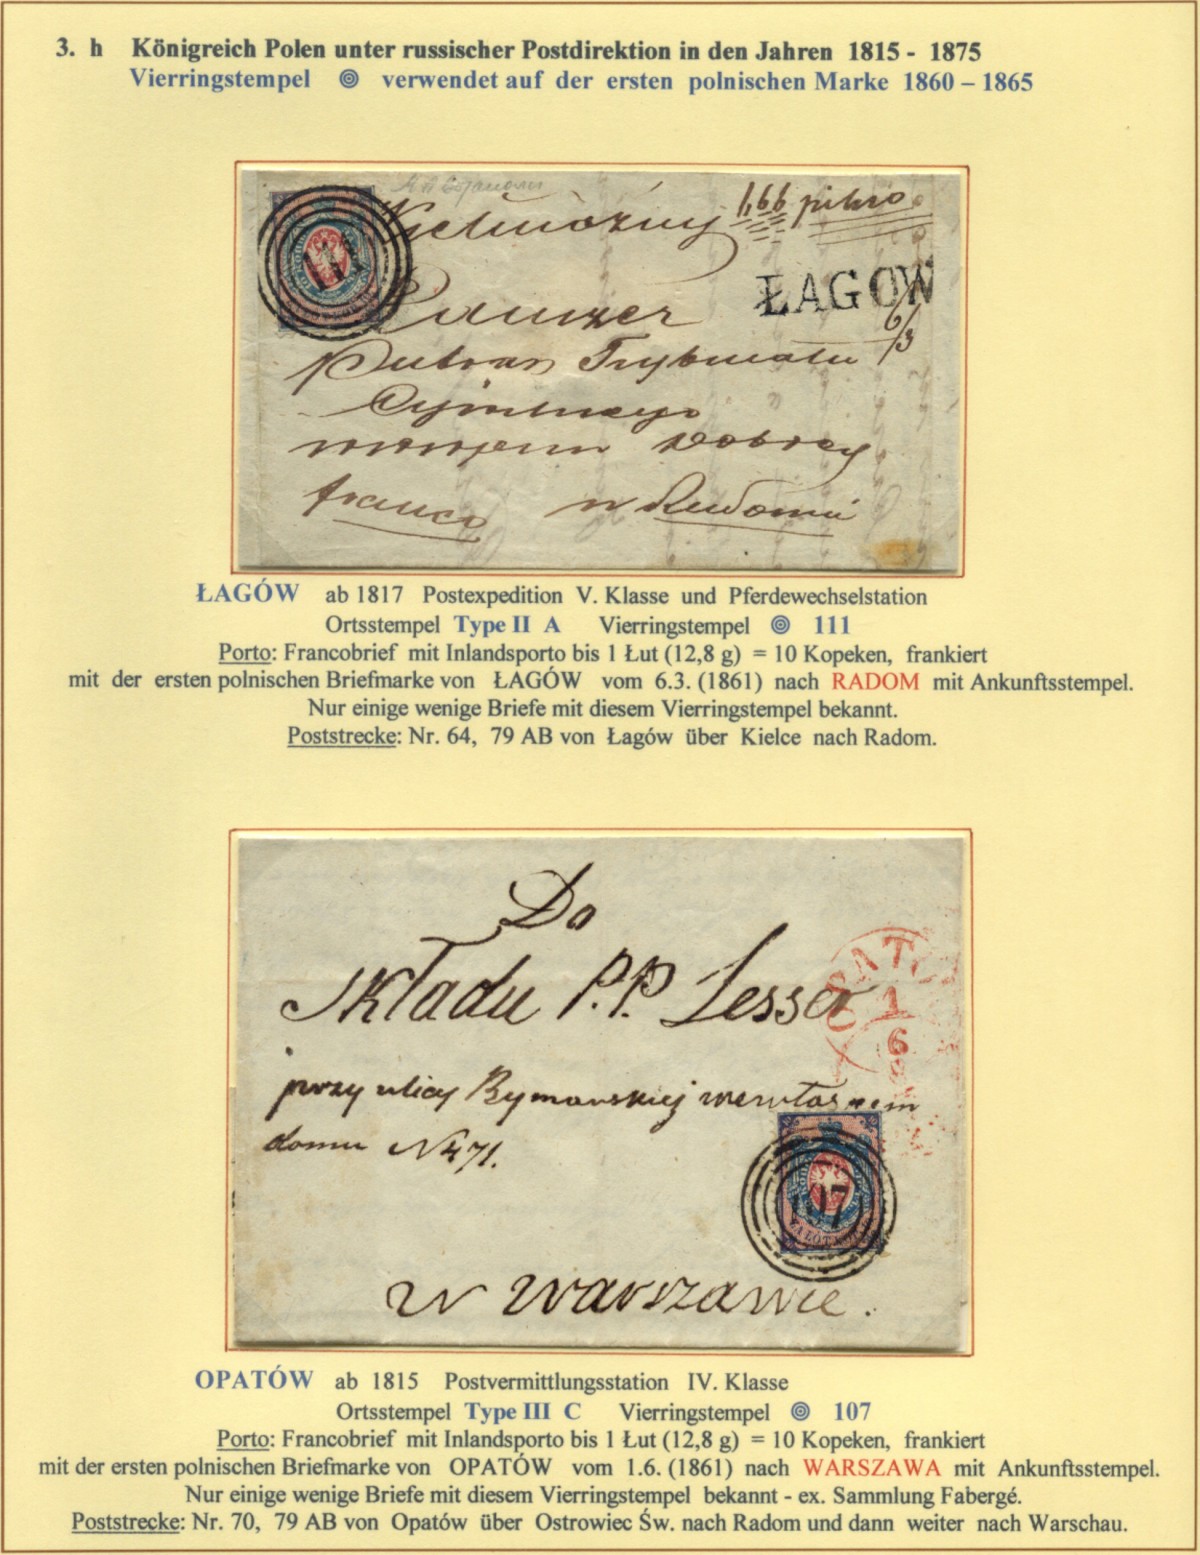 3. h Königreich Polen unter russischer Postdirektion in den Jahren 1815 - 1875
Vierringstempel verwendet auf der ersten polnischen Marke 1860 – 1865
Wielmożny
ŁAGOW
6/3
Trybunału
Cywilnego
franco w Radomiu
ŁAGÓW ab 1817 Postexpedition V. Klasse und Pferdewechselstation
Ortsstempel Type II A Vierringstempel 111
Porto: Francobrief mit Inlandsporto bis 1 Łut (12,8 g) = 10 Kopeken, frankiert
mit der ersten polnischen Briefmarke von ŁAGÓW vom 6.3. (1861) nach RADOM mit Ankunftsstempel.
Nur einige wenige Briefe mit diesem Vierringstempel bekannt.
Poststrecke: Nr. 64, 79 AB von Łagów über Kielce nach Radom.
Do
Składu P.P. Lesser
przy ulicy Rymarskiej we własnem
domu N 471.
1
6
107
w Warszawie.
OPATÓW ab 1815 Postvermittlungsstation IV. Klasse
Ortsstempel Type III C Vierringstempel 107
Porto: Francobrief mit Inlandsporto bis 1 Łut (12,8 g) = 10 Kopeken, frankiert
mit der ersten polnischen Briefmarke von OPATÓW vom 1.6. (1861) nach WARSZAWA mit Ankunftsstempel.
Nur einige wenige Briefe mit diesem Vierringstempel bekannt - ex. Sammlung Fabergé.
Poststrecke: Nr. 70, 79 AB von Opatów über Ostrowiec Św. nach Radom und dann weiter nach Warschau.